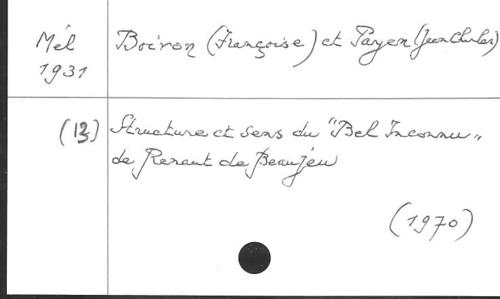 Mél
1931
Boiron (Françoise) et Payen (Jean Charles)
(13)
Structure et sens du "Bel Inconnu"
de Renaut de Beaujeu
(1970)